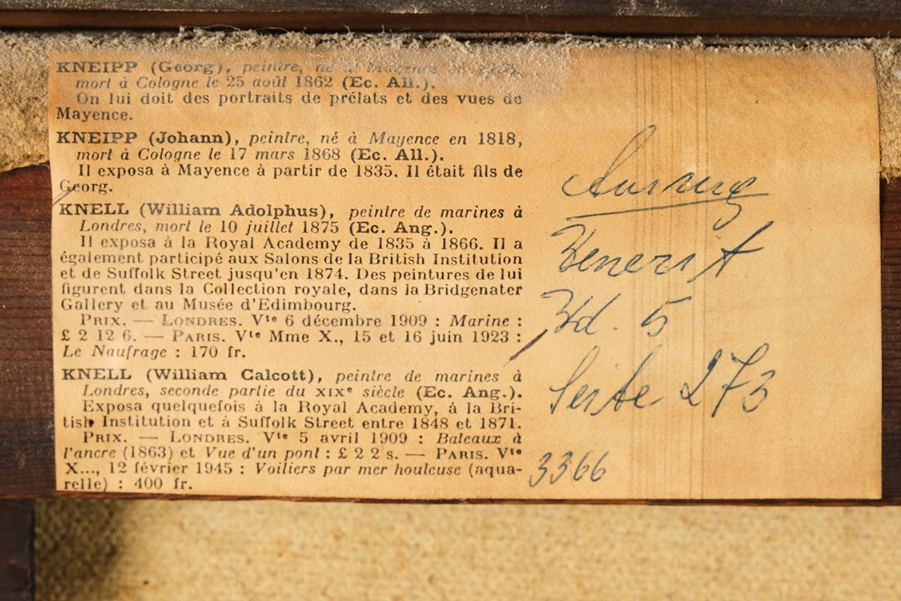 KNEIPP (Georg), peintre, né à Mayence en
mort à Cologne le 25 août 1862 (Ec. All.).
On lui doit des portraits de prélats et des vues de
Mayence.
KNEIPP (Johann), peintre, né à Mayence en 1818,
mort à Cologne le 17 mars 1868 (Ec. All.).
Il exposa à Mayence à partir de 1835. Il était fils de
Georg.
KNELL (William Adolphus), peintre de marines à
Londres, mort le 10 juillet 1875 (Ec. Ang.).
Il exposa à la Royal Academy de 1835 à 1866. Il a
également participé aux Salons de la British Institution
et de Suffolk Street jusqu'en 1874. Des peintures de lui
figurent dans la Collection royale, dans la Bridgenater
Gallery et au Musée d'Edimbourg.
PRIX. — LONDRES. Vte 6 décembre 1909 : Marine :
£ 2 12 6. — PARIS. Vte Mme X., 15 et 16 juin 1923 :
Le Naufrage : 170 fr.
KNELL (William Calcott), peintre de marines à
Londres, seconde partie du XIXe siècle (Ec. Ang.).
Exposa quelquefois à la Royal Academy, à la Bri-
tish Institution et à Suffolk Street entre 1848 et 1871.
PRIX. — LONDRES. Vte 5 avril 1909 : Bateaux à
l'ancre (1863) et Vue d'un pont : £ 2 2 s. — PARIS. Vte
X..., 12 février 1945 : Voiliers par mer houleuse (aqua-
relle) : 400 fr.
Auszug
Benezit
Bd. 5
Seite 273
3366